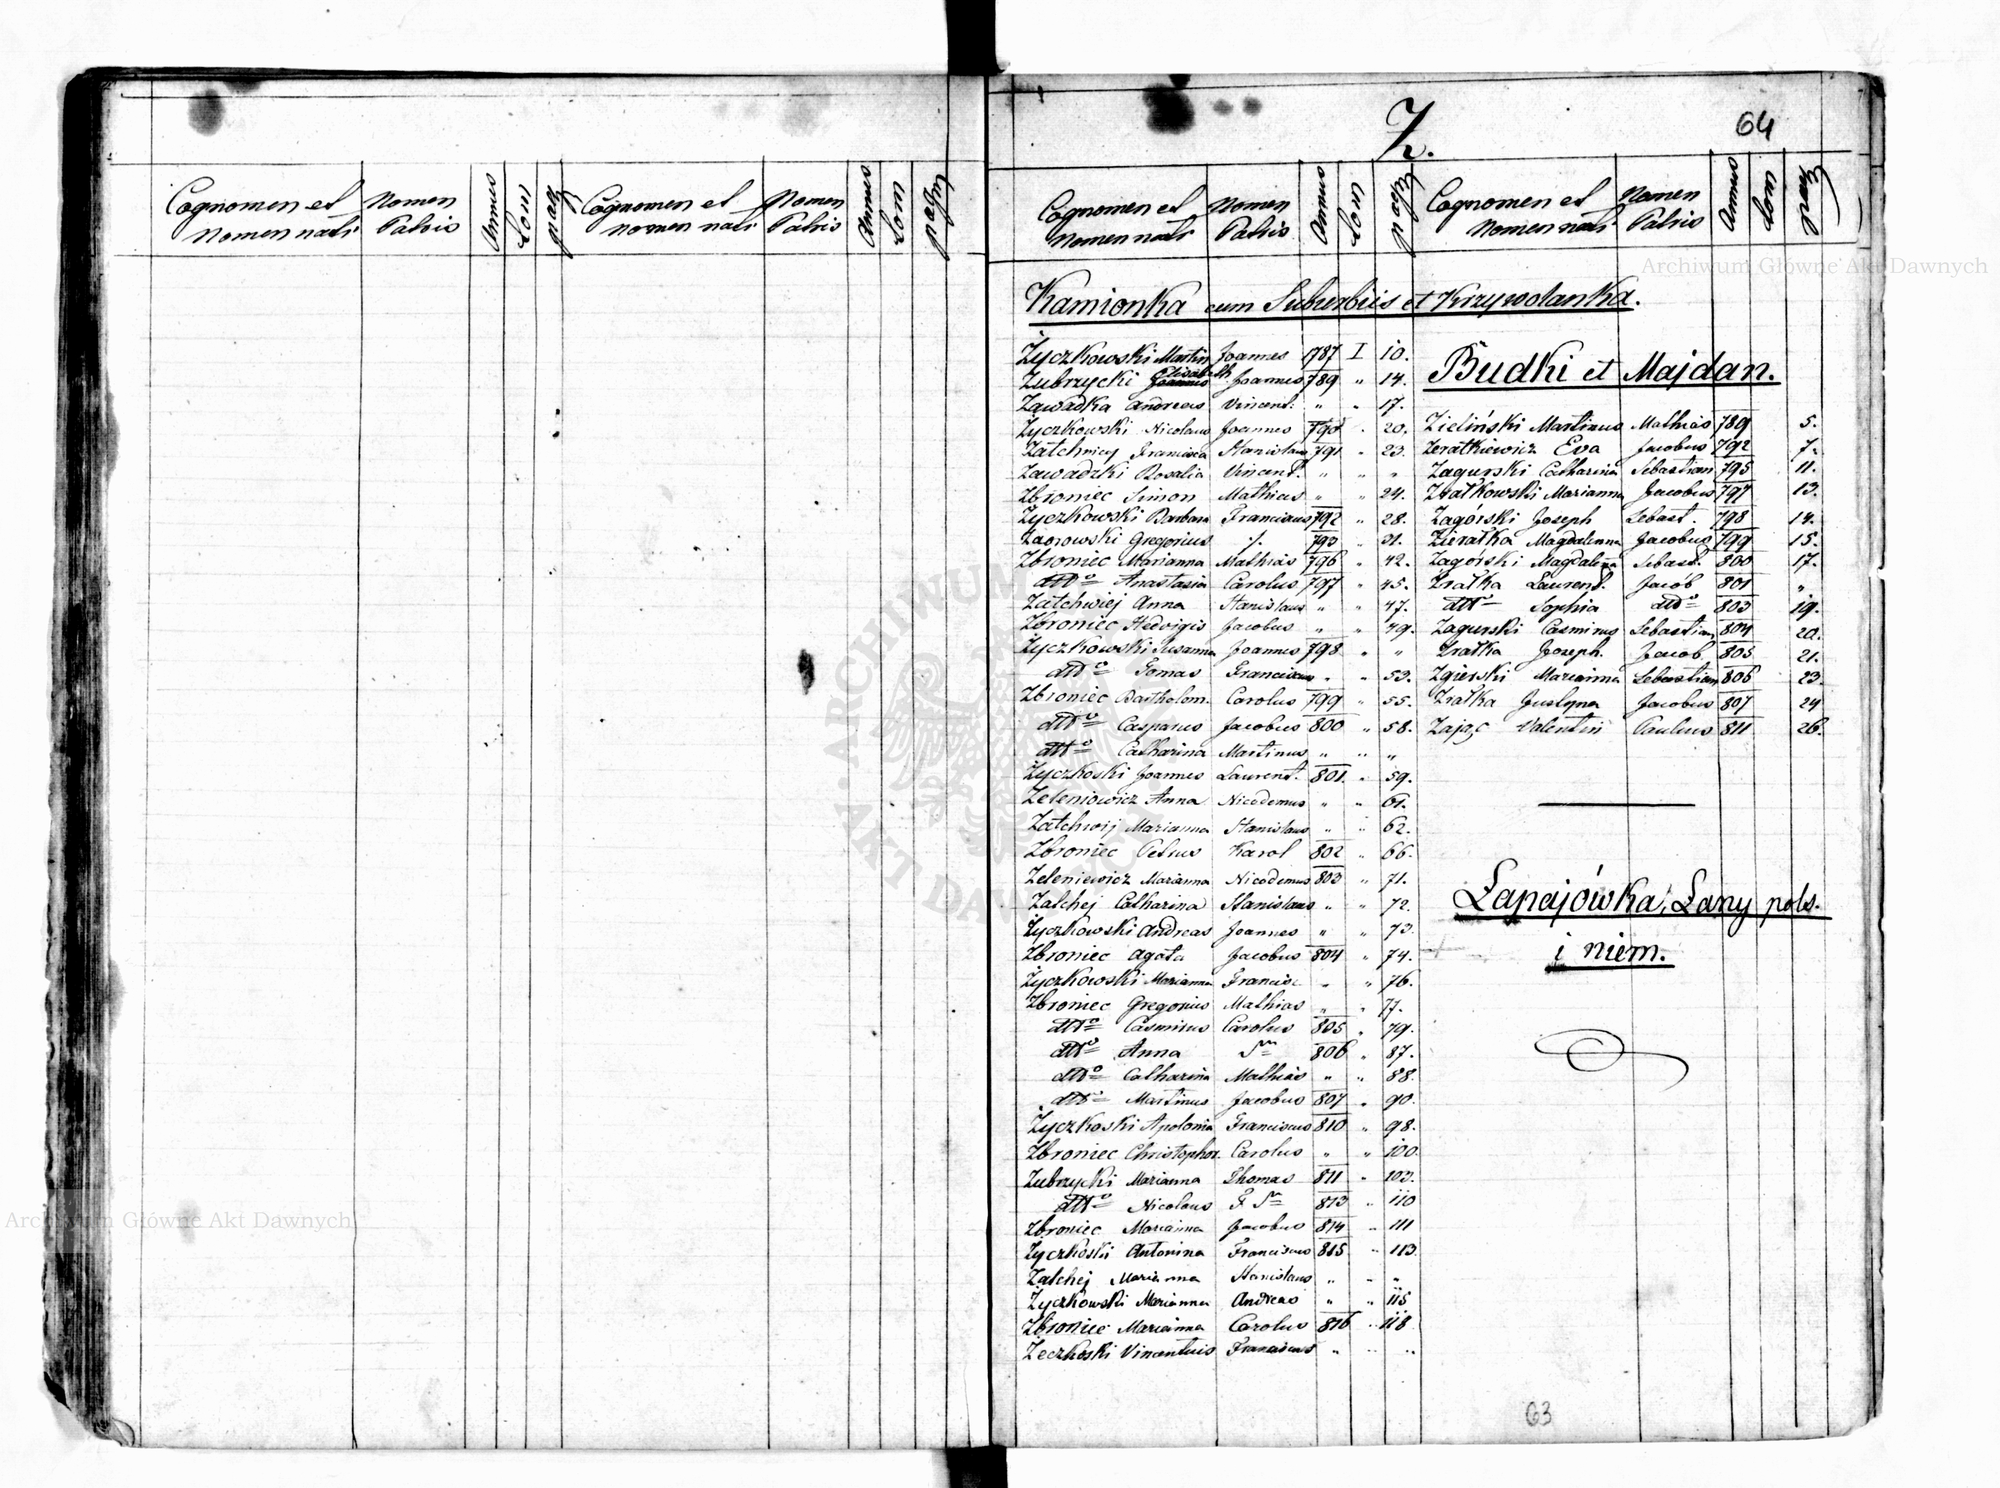 Cognomen et Nomen nati
Nomen Patris
Annus
Tom
pag
Cognomen et Nomen nati
Nomen Patris
Annus
Tom
pag
Z.
64
Cognomen et Nomen nati
Nomen Patris
Annus
Tom
pag
Cognomen et Nomen nati
Nomen Patris
Annus
Tom
pag
Kamionka cum Suburbiis et Krzywolanka.
Życzkowski Martin Joannes 1787 I 10.
Zubrzycki Elisabeth Joannes 789 " 14.
Zawadka Andreas Vincent. " " 17.
Życzkowski Nicolaus Joannes 790 " 20.
Zatchwiej Francisca Stanislaus 791 " 23.
Zawadzki Rosalia Vincent. " " "
Zbroniec Simon Mathias " " 24.
Życzkowski Barbara Franciscus 792 " 28.
Zaorowski Gregorius 793 " 31.
Zbroniec Marianna Mathias 796 " 42.
dtto Anastasia Carolus 797 " 45.
Zatchwiej Anna Stanislaus " " 47.
Zbroniec Hedvigis Jacobus " " 49.
Życzkowski Susanna Joannes 798 " "
dtto Tomas Franciscus " " 53.
Zbroniec Bartholom. Carolus 799 " 55.
dtto Casparus Jacobus 800 " 58.
dtto Catharina Martinus " " "
Życzkoski Joannes Laurent. 801. " 59.
Zeleniowicz Anna Nicodemus " " 61.
Zatchwij Marianna Stanislaus " " 62.
Zbroniec Petrus Karol 802 " 66.
Zeleniewicz Marianna Nicodemus 803 " 71.
Zatchej Catharina Stanislaus " " 72.
Życzkowski Andreas Joannes " " 73.
Zbroniec Agata Jacobus 804 " 74.
Życzkowski Marianna Francisc " " 76.
Zbroniec Gregorius Mathias " " 77.
dtto Casmirus Carolus 805 " 79.
dtto Anna 806 " 87.
dtto Catharina Mathias " " 88.
dtto Martinus Jacobus 807 " 90.
Życzkoski Apolonia Franciscus 810 " 98.
Zbroniec Christophor. Carolus " " 100.
Zubrzycki Marianna Thomas 811 " 103.
dtto Nicolaus 813 " 110
Zbroniec Marianna Jacobus 814 " 111
Życzkoski Antonina Franciscus 815 " 113.
Zatchej Marianna Stanislaus " " "
Życzkowski Marianna Andreas " " 115
Zbroniec Marianna Carolus 816 " 118
Zeczkoski Vincentius Franciscus " " "
Budki et Majdan.
Zieliński Martinus Mathias 789 5.
Zeratkiewicz Eva Jacobus 792 7.
Zagurski Catharina Sebastian 795 11.
Zratkowski Marianna Jacobus 797 13.
Zagórski Joseph Sebast. 798 14.
Zieratka Magdalenna Jacobus 799 15.
Zagórski Magdalena Sebast. 800 17.
Zratka Laurent. Jacob 801 "
dtto Sophia dtto 803 19.
Zagurski Casmirus Sebastian 804 20.
Zratka Joseph. Jacob 805 21.
Zgierski Marianna Sebastian 806 23.
Zratka Justyna Jacobus 807 24
Zając Valentin Paulus 811 26.
Łapajówka, Łany pols.
i niem.
63
Archiwum Główne Akt Dawnych
Archiwum Główne Akt Dawnych
ARCHIWUM
AKT DAWNYCH